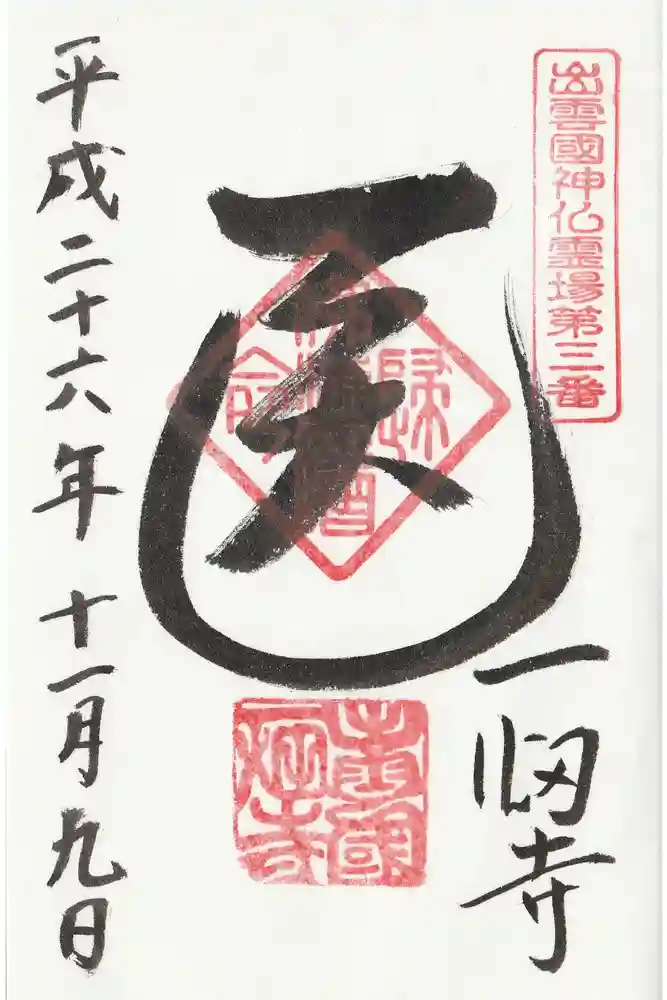 出雲國神仏霊場第三番
医
一畑寺
平成二十六年 十一月九日